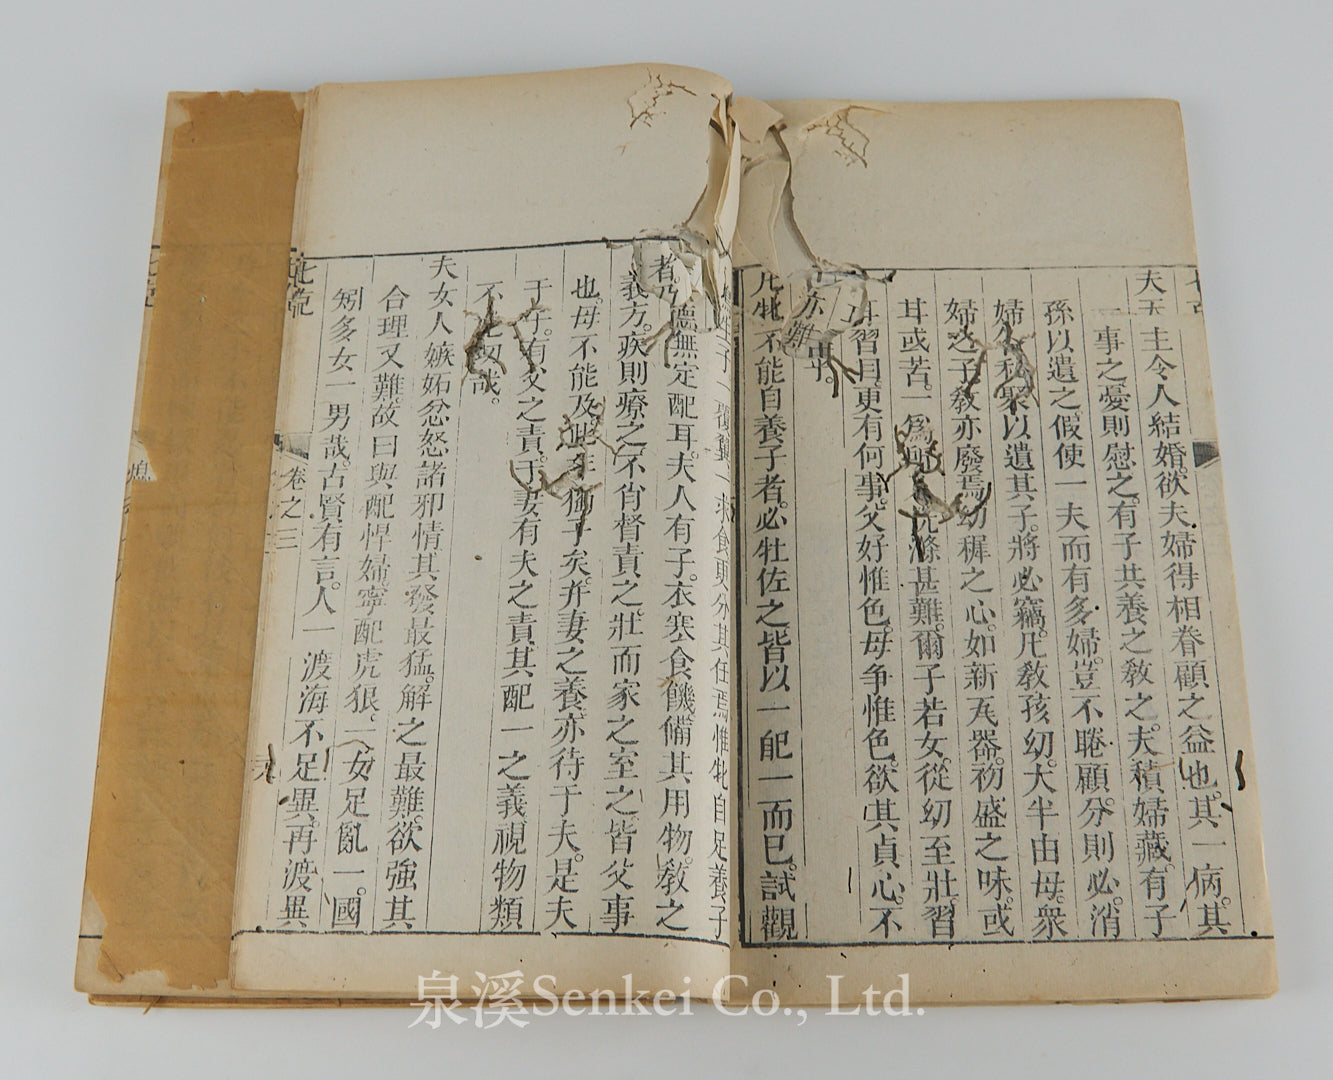 夫天主令人結婚。欲夫婦得相眷顧之益也。其一病。其
事之憂則慰之。有子其養之敎之。夫積婦藏。有子
孫以遺之。假使一夫而有多婦。豈不睠顧。分則必消
婦各私聚以遺其子。將必竊。凡敎孩幼。大半由母。衆
婦之子。敎亦廢焉。幼穉之心。如新瓦器。初盛之味。或
耳或苦。一爲所 洗滌甚難。爾子若女。從幼至壯。習
耳習目。更有何事。父好惟色。母争惟色。欲其貞心。不
亦難乎。
凡牝不能自養子者。必牡佐之。皆以一配一而已。試觀
子 求食更分其任焉。惟牝自足養子
者乃 無定配耳。夫人有子。衣寒食饑。備其用物。敎之
義方。疾則療之。不肖督責之。壯而家之室之。皆父事
也。母不能及此 矣。并妻之養亦待于夫。是夫
于子。有父之責。于妻有夫之責。其配一之義。視物類
不 切哉。
夫女人嫉妬忿怒諸邪情。其發最猛。解之最難。欲強其
合理又難。故曰與配悍婦。寧配虎狼。一女足亂一國
矧多女一男哉。古賢有言。人一渡海不足異。再渡異
七克
卷之三
泉溪Senkei Co., Ltd.